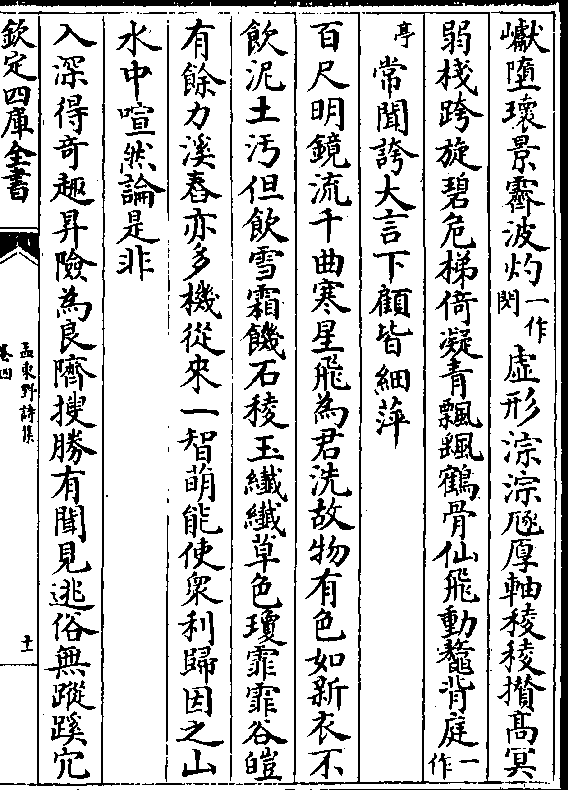 巘墮瓌景霽波灼一作閃虛形淙淙豗厚軸稜稜攢高冥
弱棧跨旋碧危梯倚凝青飄飄鶴骨仙飛動鼇背庭一作
亭常聞誇大言下顧皆細萍
百尺明鏡流千曲寒星飛為君洗故物有色如新衣不
飲泥土汚但飲雪霜饑石稜玉纖纖草色瓊霏霏谷磑
有餘力溪舂亦多機從來一智萌能使衆利歸因之山
水中喧然論是非
入深得奇趣昇險為良隮搜勝有聞見逃俗無蹤蹊宂
欽定四庫全書
孟東野詩集
卷四
十一